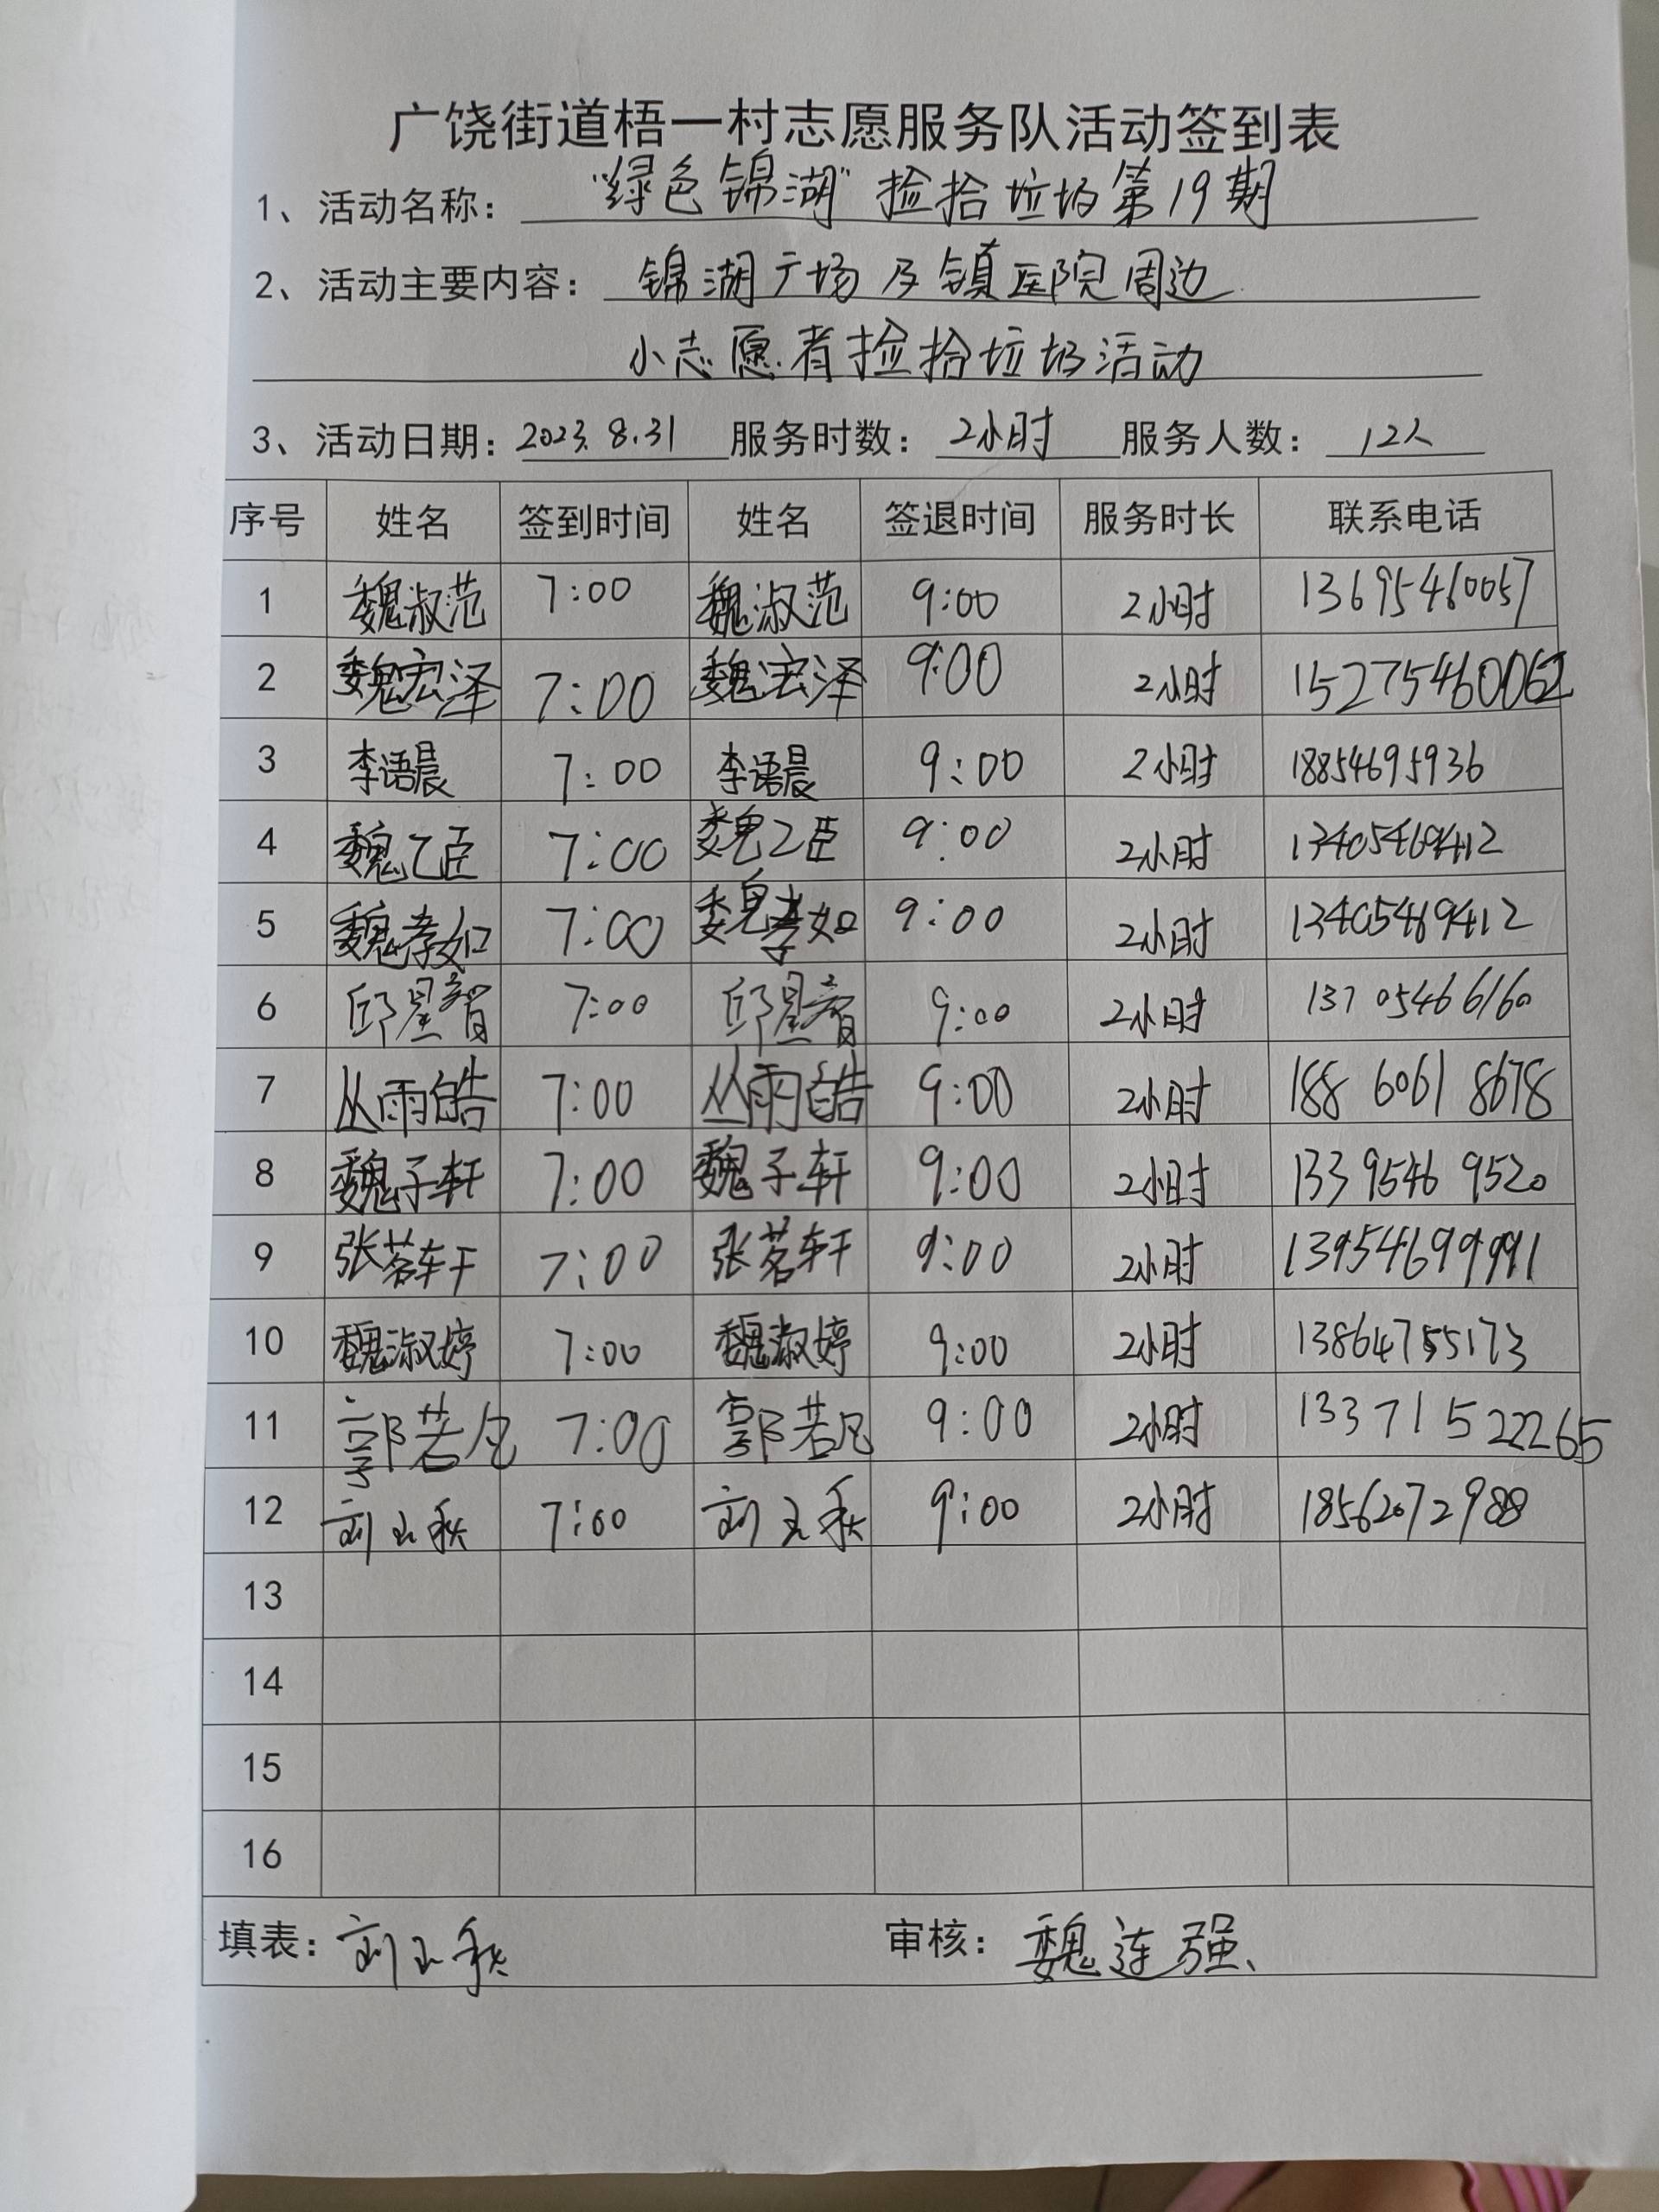 广饶街道梧一村志愿服务队活动签到表
1、活动名称：“绿色锦湖”捡拾垃圾第19期
2、活动主要内容：锦湖广场及镇医院周边
小志愿者捡拾垃圾活动
3、活动日期：2023.8.31 服务时数：2小时 服务人数：12人
序号 姓名 签到时间 姓名 签退时间 服务时长 联系电话
1 魏淑范 7:00 魏淑范 9:00 2小时 13695460057
2 魏宏泽 7:00 魏宏泽 9:00 2小时 15275460062
3 李语晨 7:00 李语晨 9:00 2小时 18854695936
4 魏乙臣 7:00 魏乙臣 9:00 2小时 13405469412
5 魏孝如 7:00 魏孝如 9:00 2小时 13405469412
6 邱星 7:00 邱星 9:00 2小时 13705466160
7 丛雨皓 7:00 丛雨皓 9:00 2小时 188 6061 8678
8 魏子轩 7:00 魏子轩 9:00 2小时 133 9546 9520
9 张茗轩 7:00 张茗轩 9:00 2小时 13954699991
10 魏淑婷 7:00 魏淑婷 9:00 2小时 13864755173
11 郭若凡 7:00 郭若凡 9:00 2小时 13371522265
12 刘玉秋 7:00 刘玉秋 9:00 2小时 18562072988
13
14
15
16
填表：刘玉秋 审核：魏连强